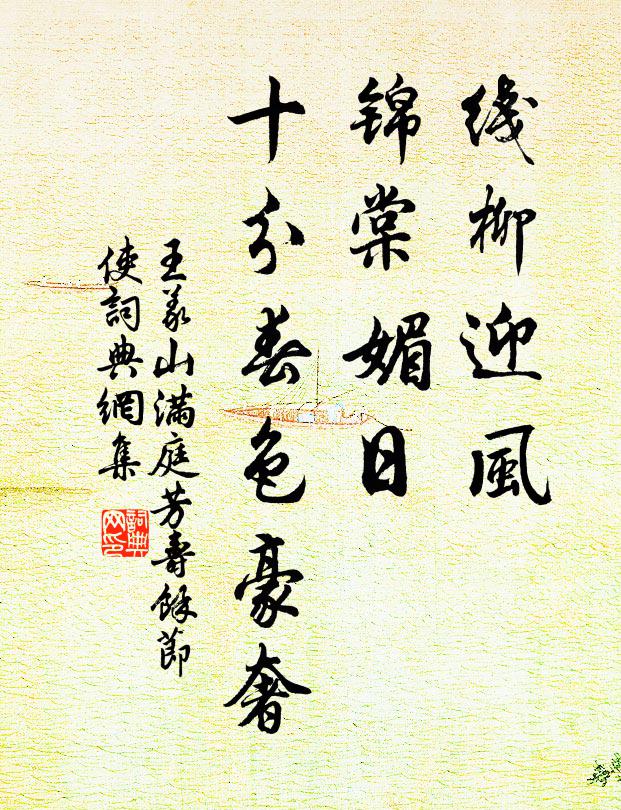 线柳迎風
锦棠媚日
十分春色豪奢
王義山满庭芳壽餘節
使詞典網集
詞典
网印